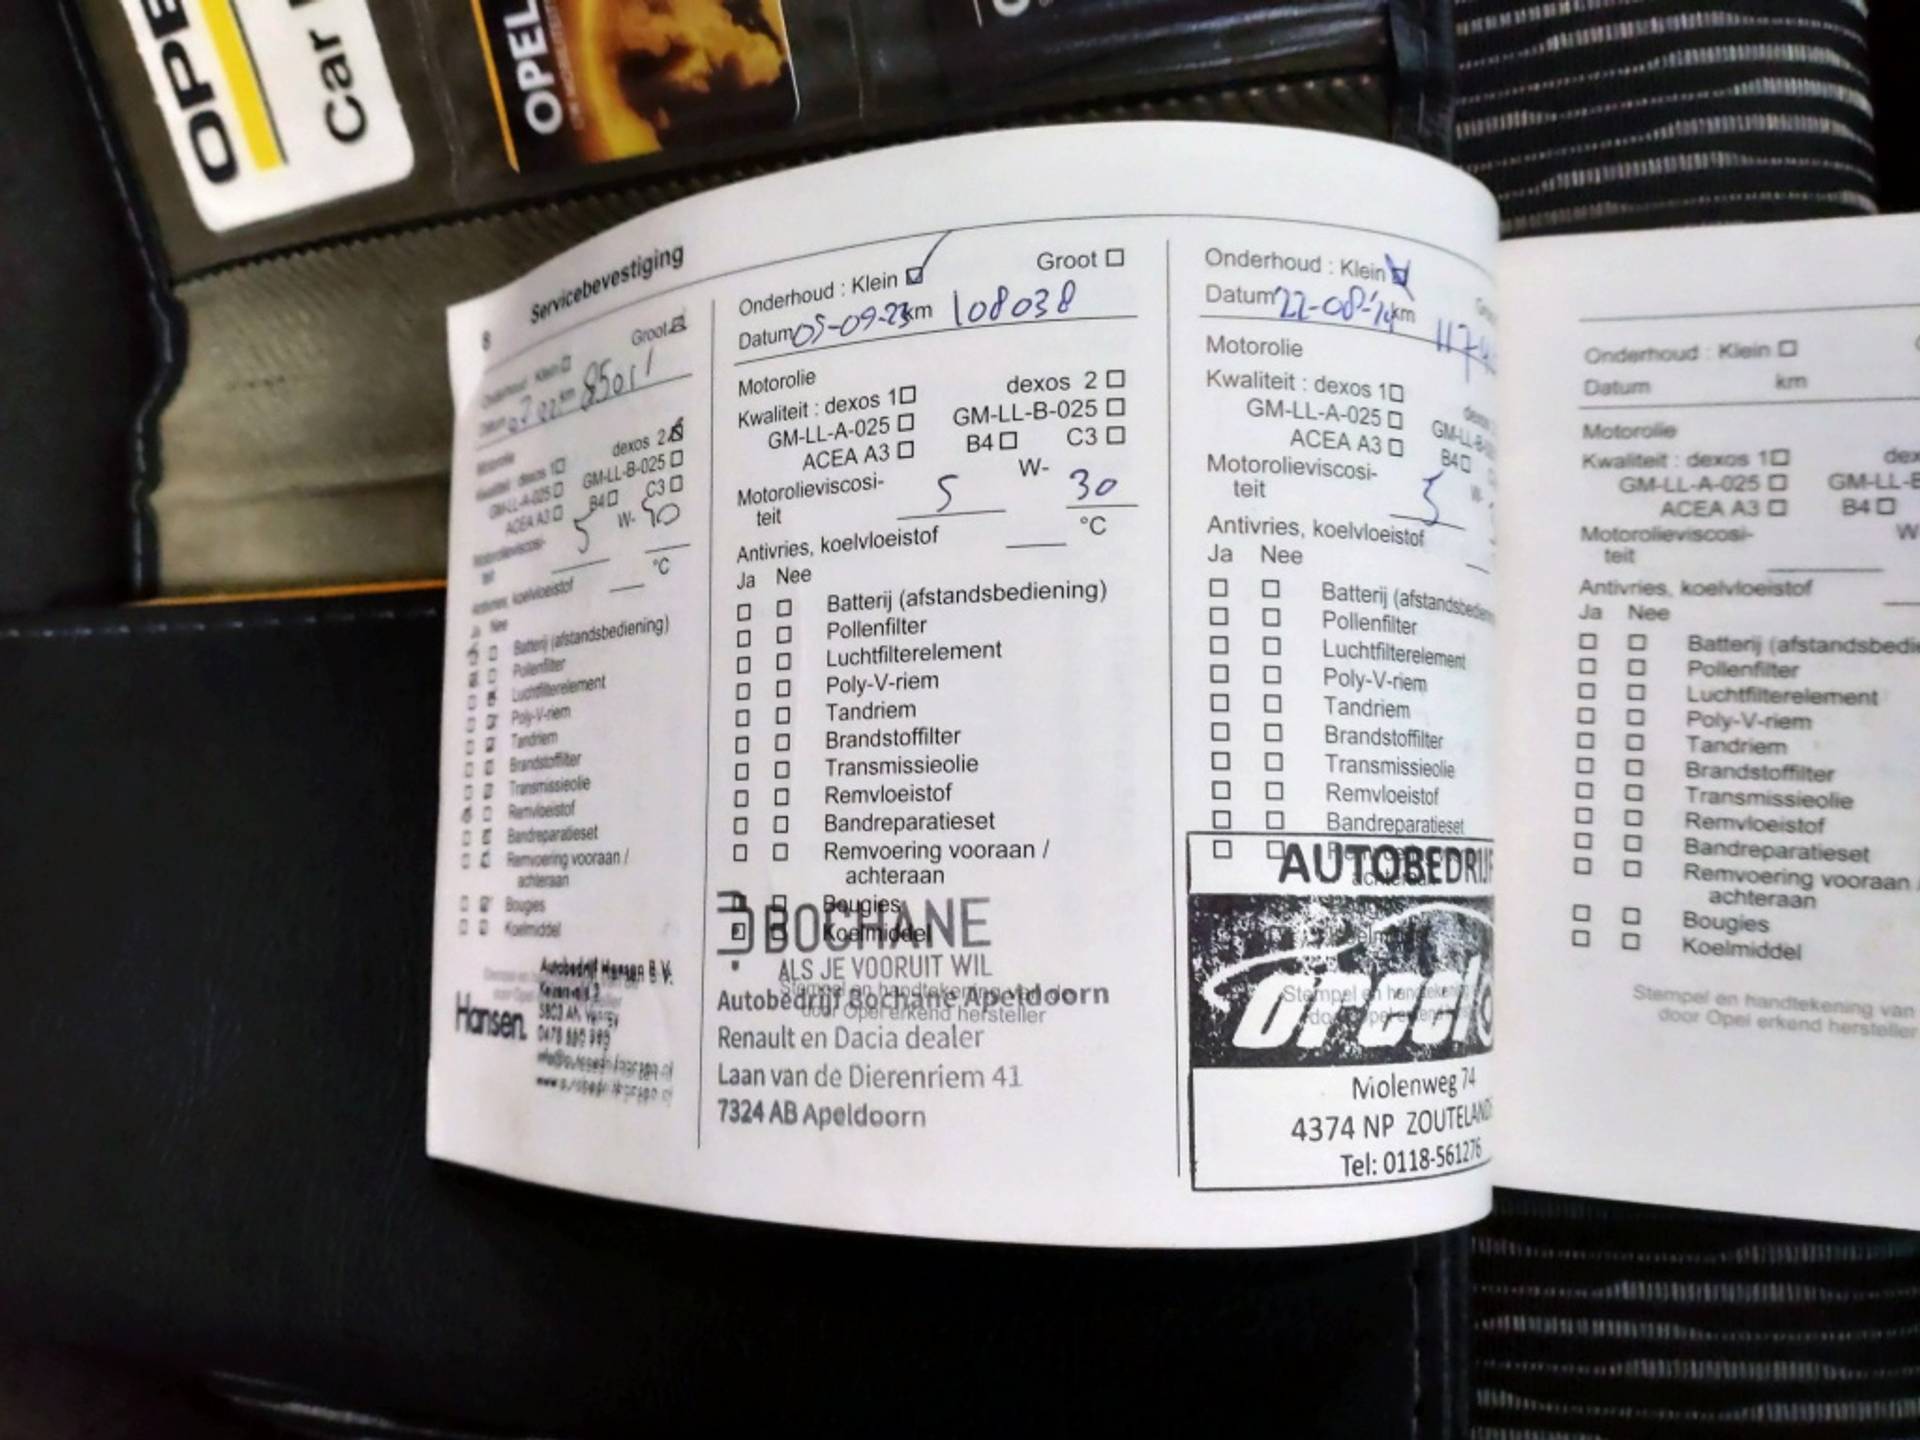 OPE
Car
OPEL
8 Servicebevestiging
Onderhoud : Klein ☐ Groot ☒
Datum km 85011
Motorolie
Kwaliteit : dexos 1 ☐ dexos 2 ☒
GM-LL-A-025 ☐ GM-LL-B-025 ☐
ACEA A3 ☐ B4 ☐ C3 ☐
Motorolieviscosi-
teit 5 W-
Antivries, koelvloeistof °C
Ja Nee
Batterij (afstandsbediening)
Pollenfilter
Luchtfilterelement
Poly-V-riem
Tandriem
Brandstoffilter
Transmissieolie
Remvloeistof
Bandreparatieset
Remvoering vooraan /
achteraan
Bougies
Koelmiddel
Autobedrijf Hansen B.V.
Hansen.
Onderhoud : Klein ☑ Groot ☐
Datum 05-09-23 km 108038
Motorolie
Kwaliteit : dexos 1 ☐ dexos 2 ☐
GM-LL-A-025 ☐ GM-LL-B-025 ☐
ACEA A3 ☐ B4 ☐ C3 ☐
Motorolieviscosi-
teit 5 W- 30
Antivries, koelvloeistof °C
Ja Nee
☐ ☐ Batterij (afstandsbediening)
☐ ☐ Pollenfilter
☐ ☐ Luchtfilterelement
☐ ☐ Poly-V-riem
☐ ☐ Tandriem
☐ ☐ Brandstoffilter
☐ ☐ Transmissieolie
☐ ☐ Remvloeistof
☐ ☐ Bandreparatieset
☐ ☐ Remvoering vooraan /
achteraan
☐ ☐ Bougies
☐ ☐ Koelmiddel
BOCHANE
ALS JE VOORUIT WIL
Stempel en handtekening van
door Opel erkend hersteller
Autobedrijf Bochane Apeldoorn
Renault en Dacia dealer
Laan van de Dierenriem 41
7324 AB Apeldoorn
Onderhoud : Klein ☑
Datum 22-08- km
Motorolie
Kwaliteit : dexos 1 ☐
GM-LL-A-025 ☐ GM-LL-B-
ACEA A3 ☐ B4 ☐
Motorolieviscosi-
teit 5 W-
Antivries, koelvloeistof
Ja Nee
☐ ☐ Batterij (afstandsbedien
☐ ☐ Pollenfilter
☐ ☐ Luchtfilterelement
☐ ☐ Poly-V-riem
☐ ☐ Tandriem
☐ ☐ Brandstoffilter
☐ ☐ Transmissieolie
☐ ☐ Remvloeistof
☐ ☐ Bandreparatieset
☐ ☐
AUTOBEDRIJF
Stempel en handtekening
Molenweg 74
4374 NP ZOUTELAND
Tel: 0118-561276
Onderhoud : Klein ☐
Datum km
Motorolie
Kwaliteit : dexos 1 ☐ dex
GM-LL-A-025 ☐ GM-LL-B
ACEA A3 ☐ B4 ☐
Motorolieviscosi- W
teit
Antivries, koelvloeistof
Ja Nee
☐ ☐ Batterij (afstandsbedie
☐ ☐ Pollenfilter
☐ ☐ Luchtfilterelement
☐ ☐ Poly-V-riem
☐ ☐ Tandriem
☐ ☐ Brandstoffilter
☐ ☐ Transmissieolie
☐ ☐ Remvloeistof
☐ ☐ Bandreparatieset
☐ ☐ Remvoering vooraan /
achteraan
☐ ☐ Bougies
☐ ☐ Koelmiddel
Stempel en handtekening van
door Opel erkend hersteller